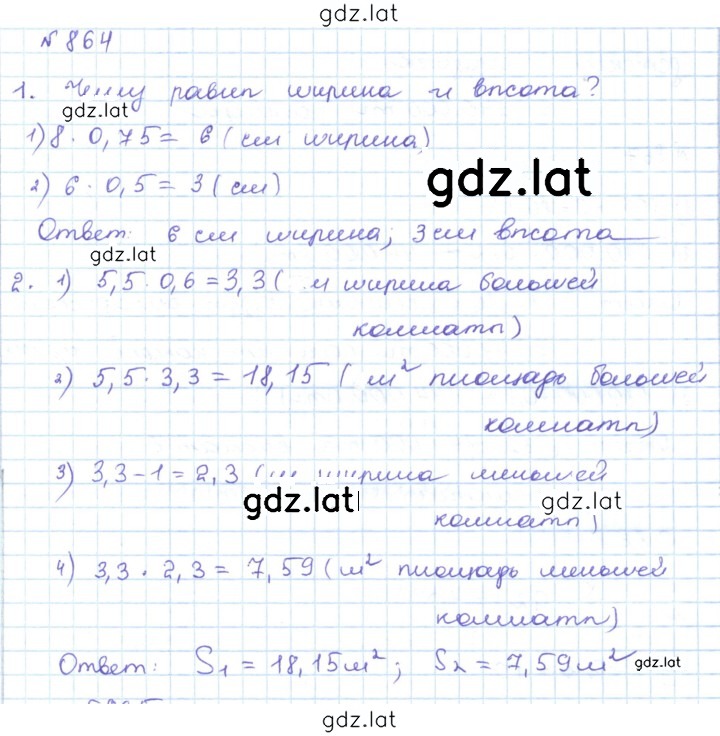 gdz.lat
№ 864
1. Чему равен ширина и высота?
gdz.lat
1) 8 · 0,75 = 6 (см ширина)
gdz.lat
2) 6 · 0,5 = 3 (см)
Ответ: 6 см ширина; 3 см высота
gdz.lat
2. 1) 5,5 · 0,6 = 3,3 ( м ширина большей
комнаты)
2) 5,5 · 3,3 = 18,15 ( м² площадь большей
комнаты)
3) 3,3 - 1 = 2,3 ( ширина меньшей
gdz.lat gdz.lat
комнаты)
4) 3,3 · 2,3 = 7,59 (м² площадь меньшей
комнаты)
Ответ: S₁ = 18,15 м²; S₂ = 7,59 м² gdz.lat
gdz.lat